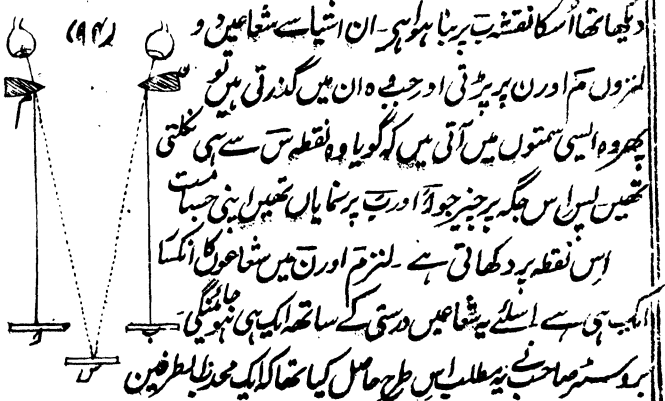 دیکھا تھا اُسکا نقشہ بَ پر بنا ہوا ہی۔ ان اشیا سے شعاعیں دو
(۹۴)
لنزوں مَ اور ن پر پڑتی اور جب وہ ان میں گذرتی ہیں تو
پھر وہ ایسی سمتوں میں آتی ہیں کہ گویا وہ نقطہ سَ سے ہی نکلتی
تھیں پس اس جگہ پر چیز جو اَ اور بَ پر نمایاں تھیں اپنی جسامت
اِس نقطہ پر دکھاتی ہے۔ لنز مَ اور نَ میں شعاعوں کا انکسا
ایک ہی سے اسلئے یہ شعاعیں درستی کے ساتھ ایک ہی ہو جائینگی۔
بروسٹر صاحب نے یہ مطلب اس طرح حاصل کیا تھا کہ ایک محدب الطرفین
م
ا
ب
س